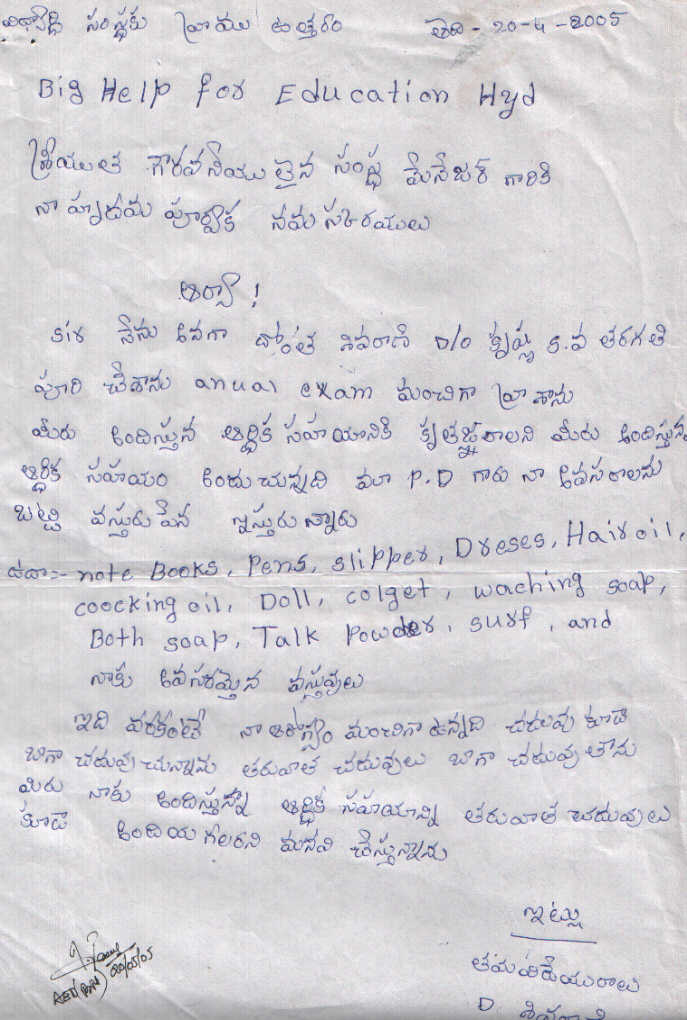 సంస్థకు వ్రాయు ఉత్తరం తేది - 20-4-2005
Big Help for Education Hyd
శ్రీయుత గౌరవనీయులైన సంస్థ మేనేజర్ గారికి
నా హృదయ పూర్వక నమస్కారములు
ఆర్యా!
Sir నేను అనగా శివరాణి D/o కృష్ణ 5.వ తరగతి
పూర్తి చేశాను anual exam మంచిగా వ్రాశాను
మీరు అందిస్తున ఆర్ధిక సహయానికి కృతజ్ఞురాలని మీరు అందిస్తున్న
ఆర్ధిక సహయం అందుచున్నది మా P.D గారు నా అవసరాలను
బట్టి ఇస్తురున్నారు
ఉదా:- note Books, Pens, slipper, Dreses, Hair oil,
coocking oil, Doll, colget, waching soap,
Both soap, Talk Powder, surf, and
నాకు అవసరమైన వస్తువులు
ఇది వరకంటే నా ఆరోగ్యం మంచిగా ఉన్నది చదువు కూడా
బాగా చదువుచున్నాను తరువాత చదువులు బాగా చదువుతాను
మిరు నాకు అందిస్తున్న ఆర్ధిక సహయాన్ని తరువాత చదువులు
కూడా అందియగలరని మనవి చేస్తున్నాను
ఇట్లు
తమ విధేయురాలు
D. శివరాణి